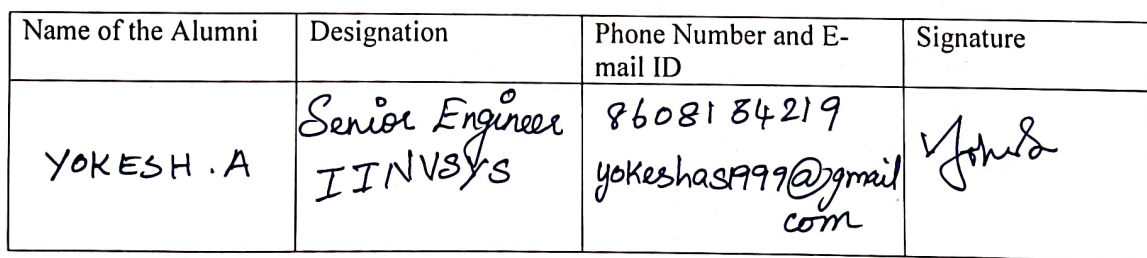 Name of the Alumni
Designation
Phone Number and E-
mail ID
Signature
YOKESH . A
Senior Engineer
IINVSYS
8608184219
yokeshas1999@gmail
com